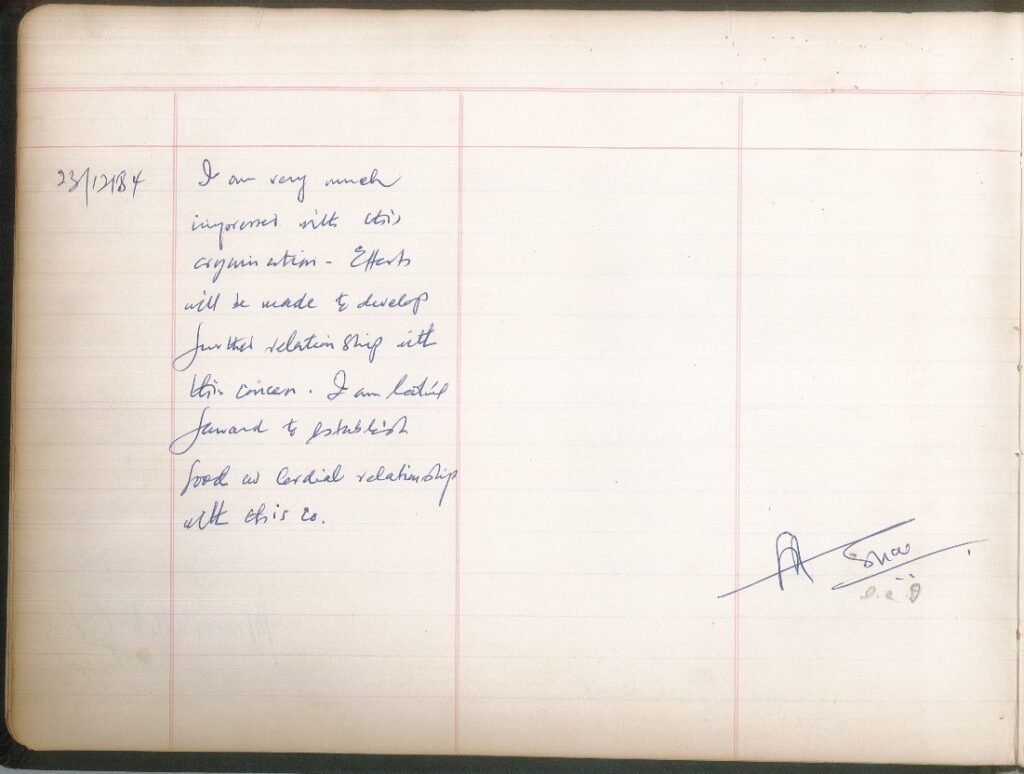 23/12/84
I am very much
impressed with this
organisation. Efforts
will be made to develop
further relationship with
this concern. I am looking
forward to establish
good and cordial relationship
with this co.